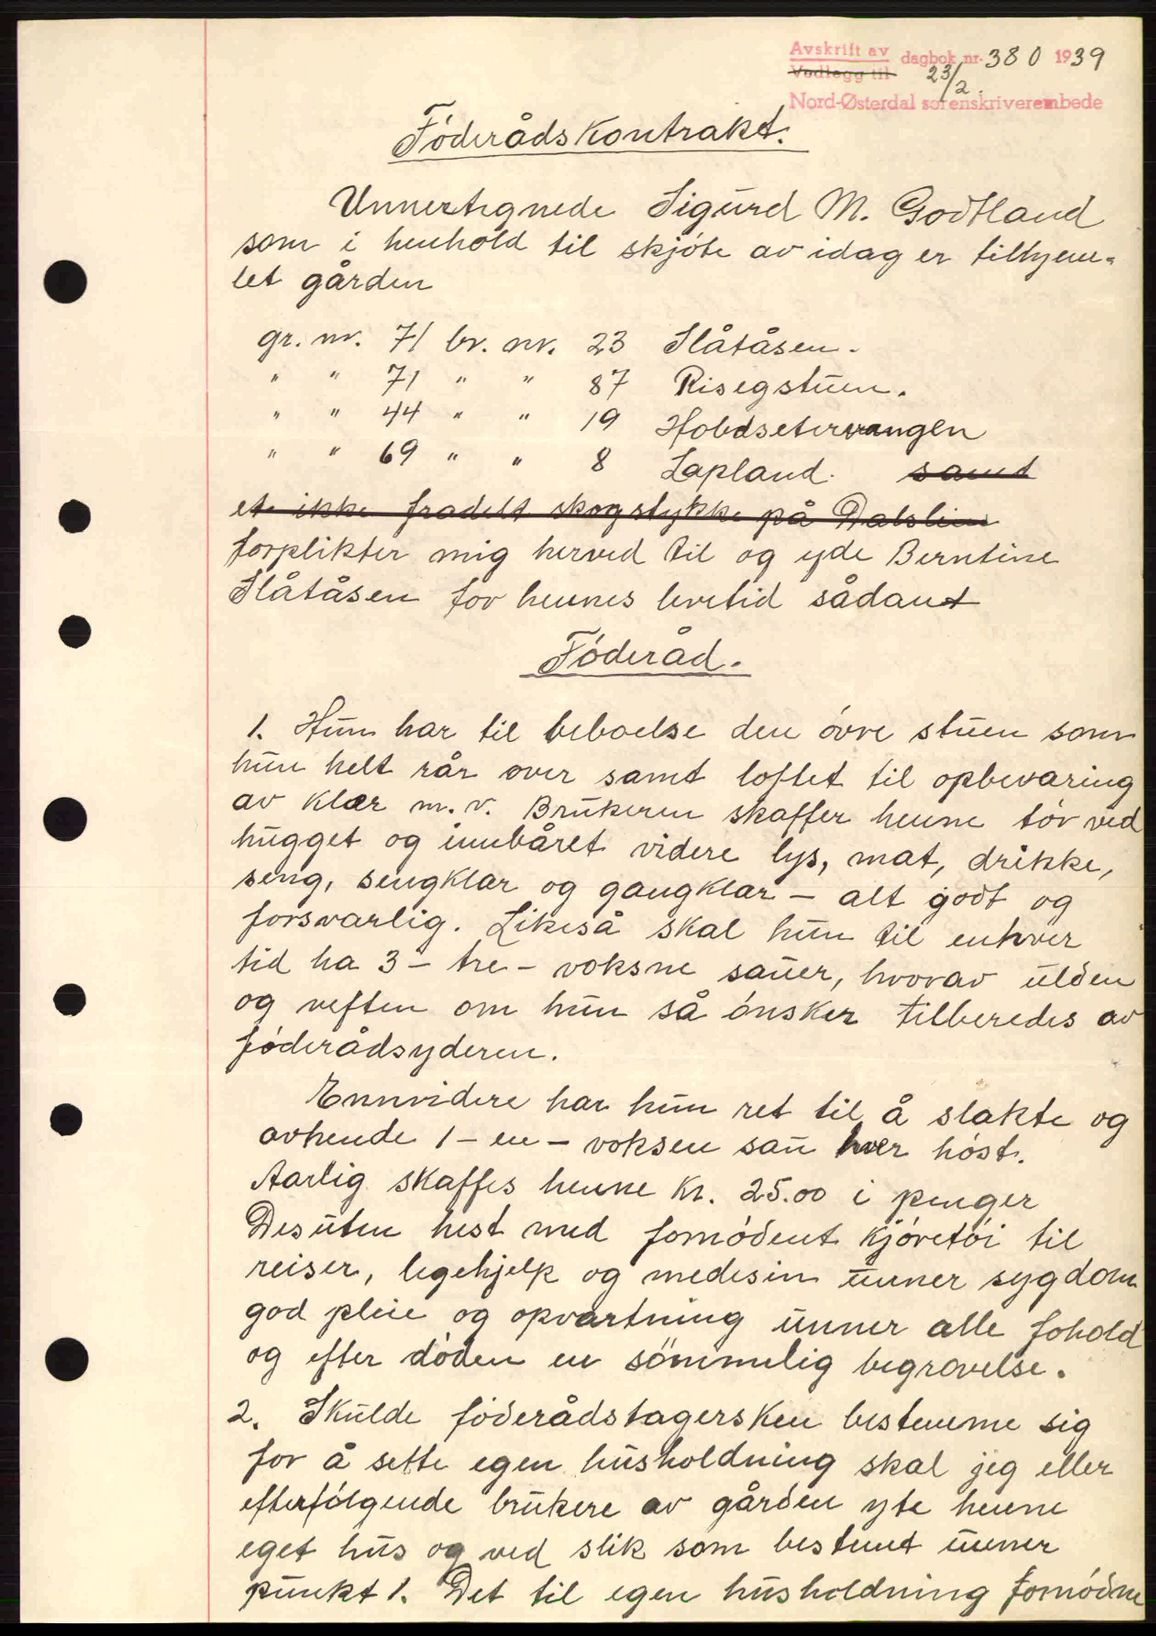 Avskrift av dagbok nr. 380 1939
Vedlegg til 23/2.
Nord-Østerdal sorenskriverembede
Föderådskontrakt.
Unnertegnede Sigurd M. Godtland
som i henhold til skjöte av idag er tilhjem-
let gården
gr. nr. 71 br. nr. 23 Slåtåsen.
" " 71 " " 87 Risegstuen.
" " 44 " " 19 Hobdsetervangen
" " 69 " " 8 Lapland. samt
et ikke fradelt skogstykke på Dalslien
forplikter mig herved til og yde Berntine
Slåtåsen for hennes levetid sådant
Föderåd.
1. Hun har til beboelse den övre stuen som
hun helt rår over samt loftet til opbevaring
av klær m.v. Brukeren skaffer henne tör ved
hugget og innbåret videre lys, mat, drikke,
seng, sengklær og gangklær - alt godt og
forsvarlig. Likeså skal hun til enhver
tid ha 3 - tre - voksne sauer, hvorav ulden
og veften om hun så önsker tilberedes av
föderådsyderen.
Ennvidere har hun ret til å slakte og
avhende 1 - en - voksen sau hver höst.
Aarlig skaffes henne kr. 25.00 i penger
Desuten hest med fornödent kjöretöi til
reiser, legehjelp og medisin unner sygdom
god pleie og opvartning unner alle fohold
og efter döden en sömmelig begravelse.
2. Skulde föderådstagersken bestemme sig
for å sette egen husholdning skal jeg eller
efterfölgende brukere av gården yte henne
eget hus og ved slik som bestemt unner
punkt 1. Det til egen husholdning fornödne